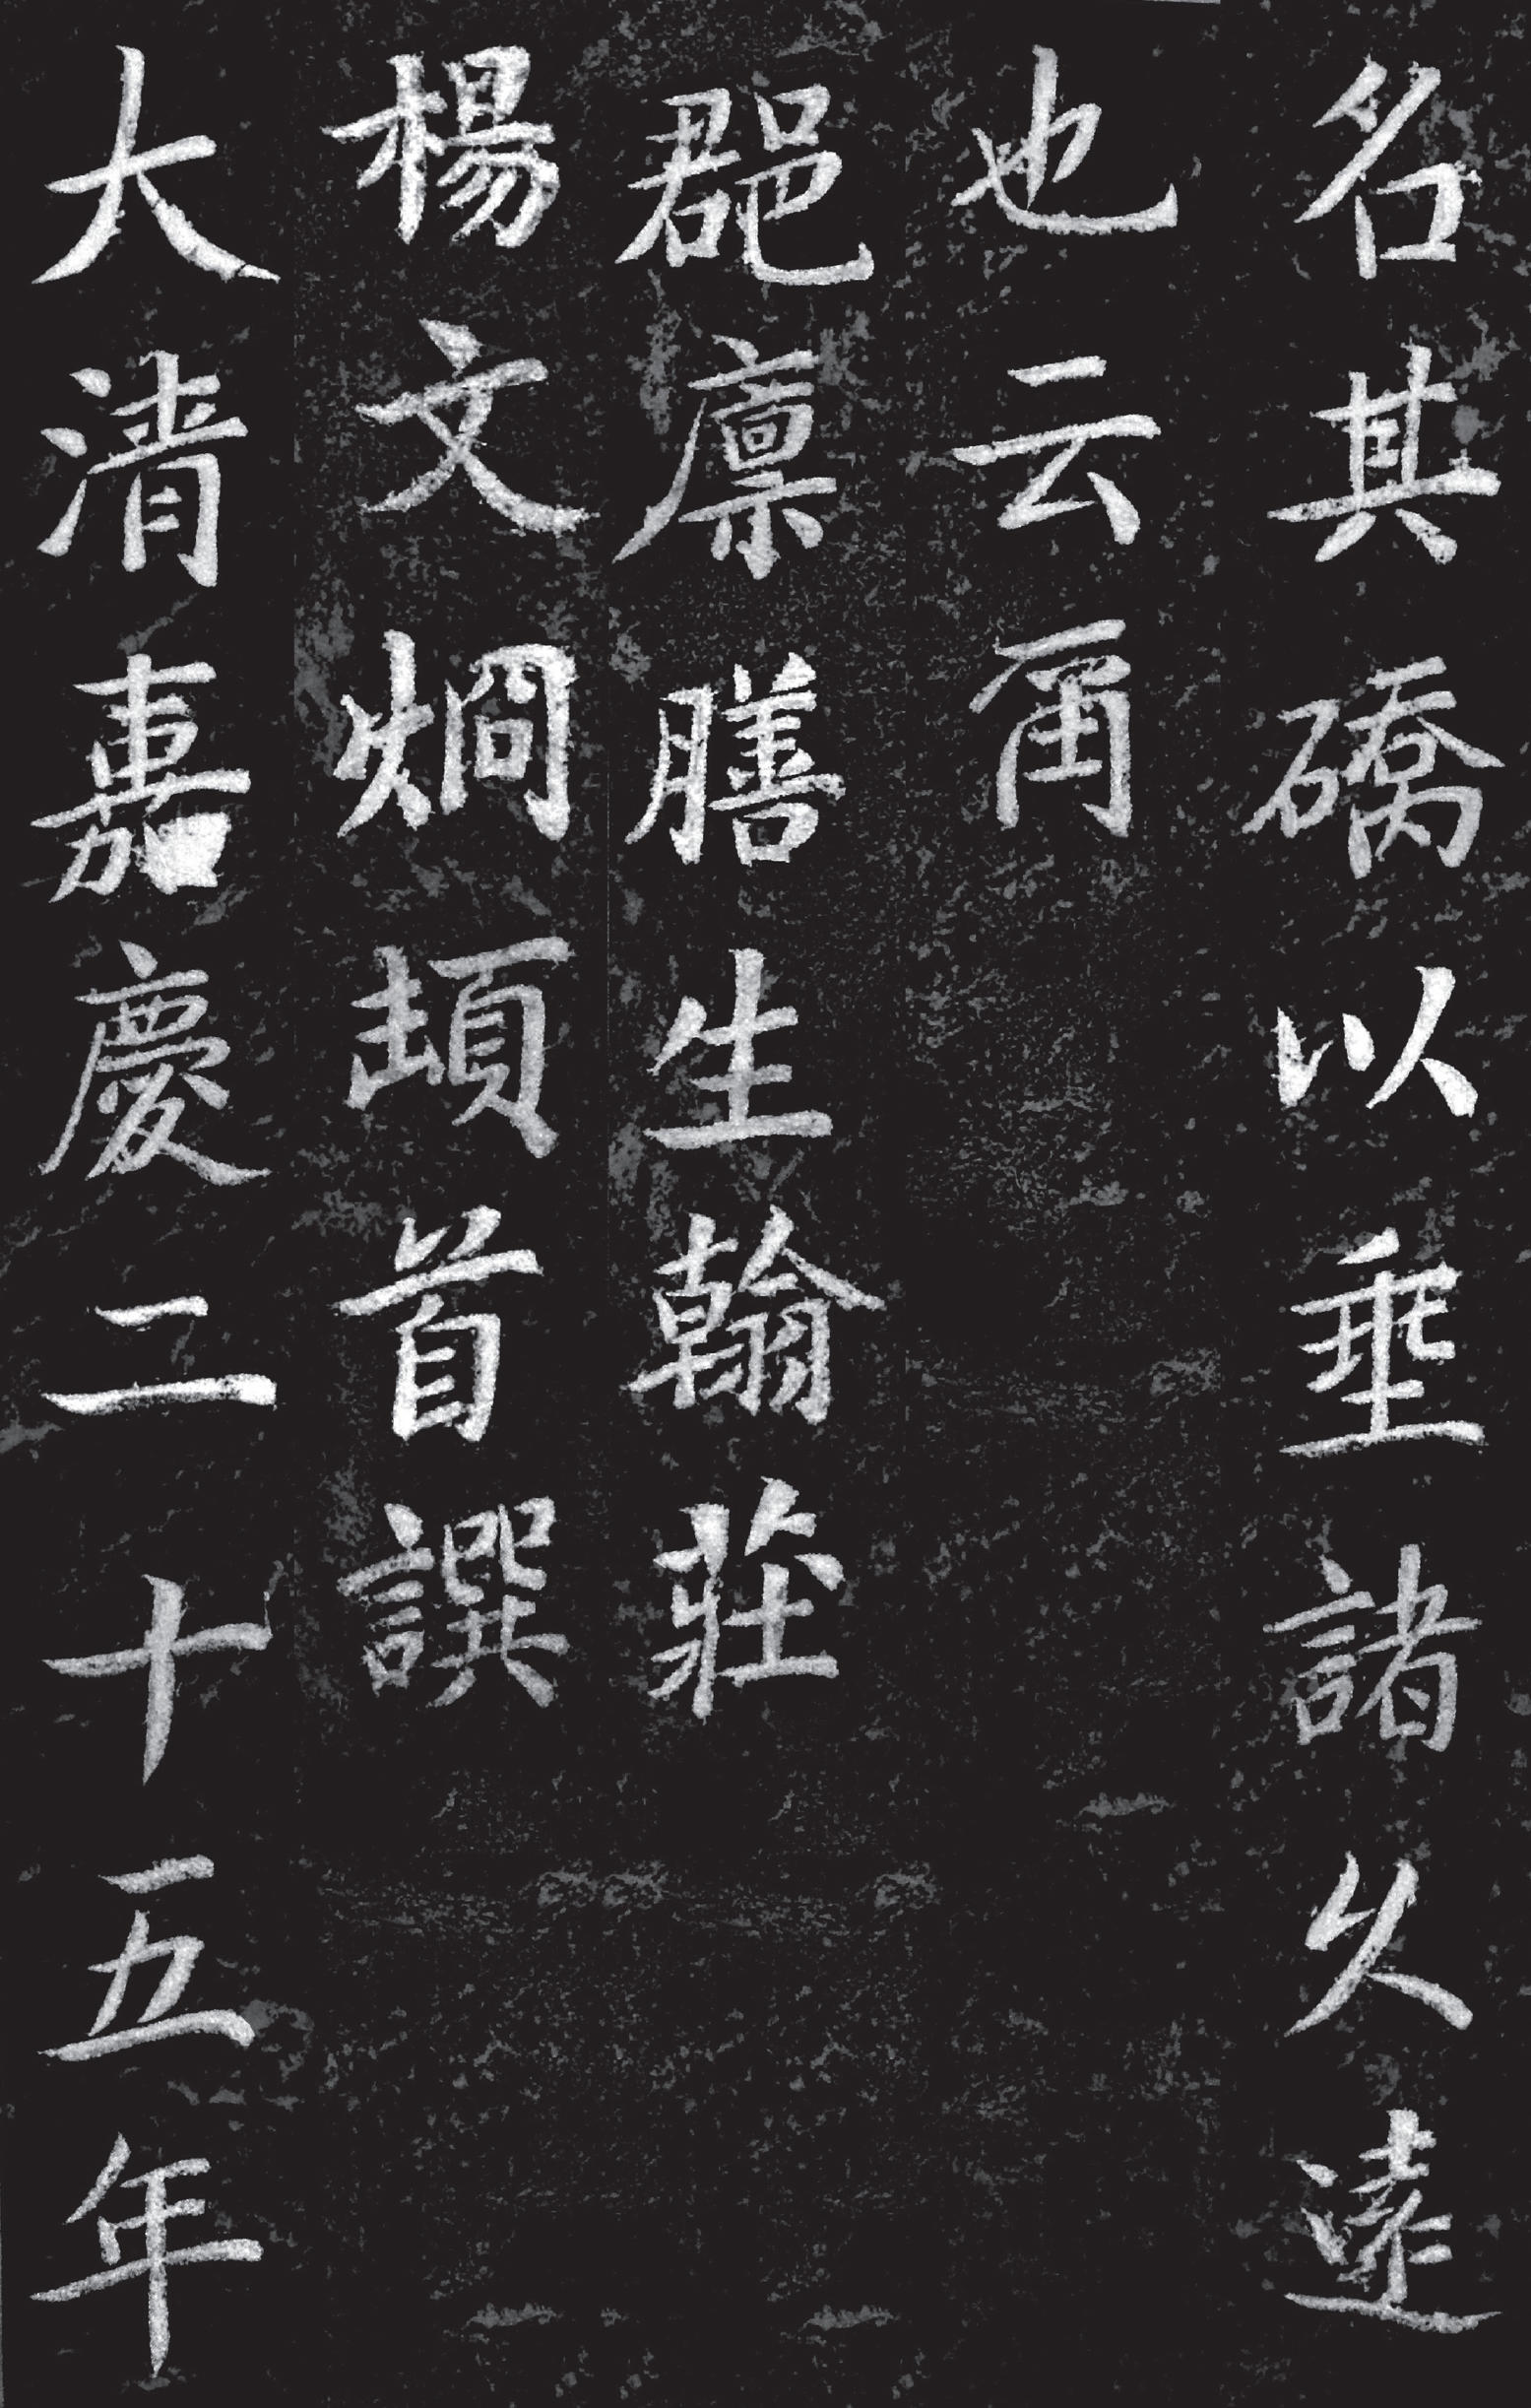 名其礄以垂諸久遠
也云爾
郡廩膳生翰莊
楊文烱頓首譔
大清嘉慶二十五年